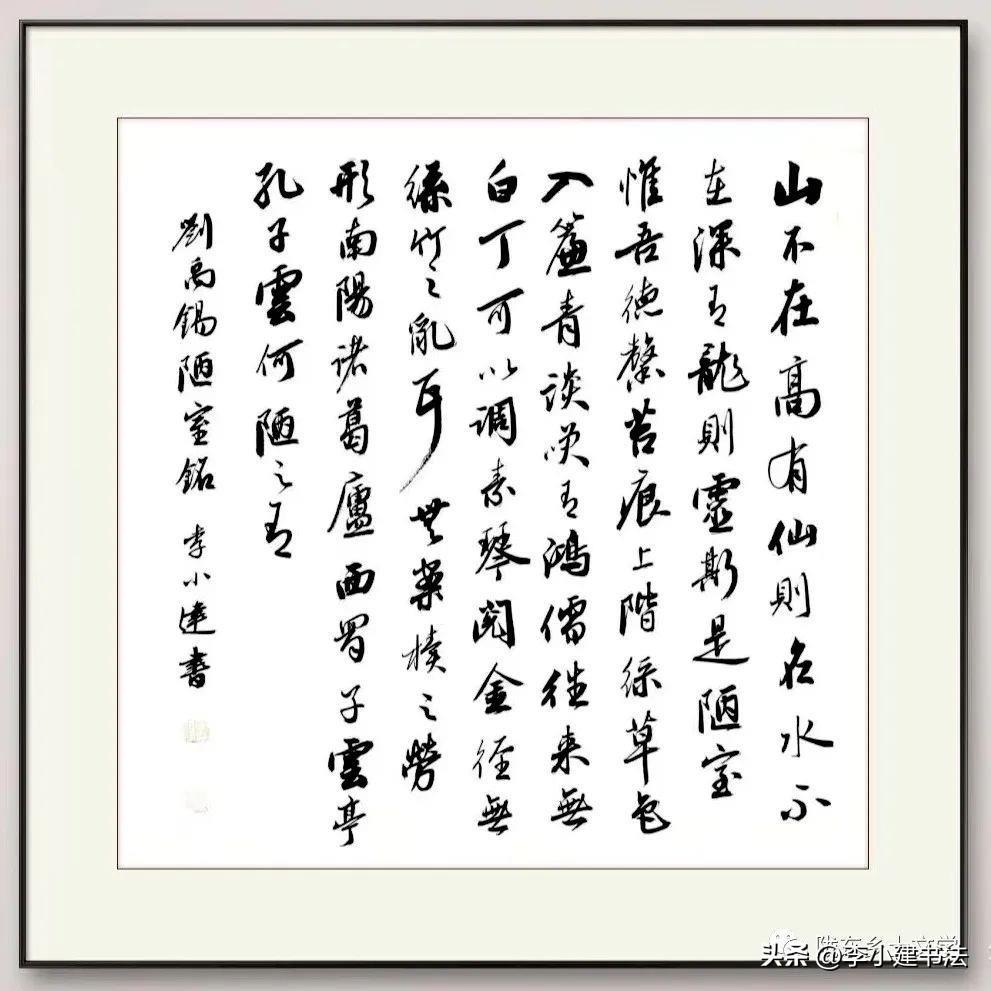 山不在高有仙則名水不
在深有龍則靈斯是陋室
惟吾德馨苔痕上階綠草色
入簾青談笑有鴻儒往来無
白丁可以調素琴閱金径無
絲竹之亂耳無案牘之勞
形南陽諸葛廬西蜀子雲亭
孔子雲何陋之有
劉禹錫陋室銘 李小建書
陇东乡土文学
头条 @李小建书法